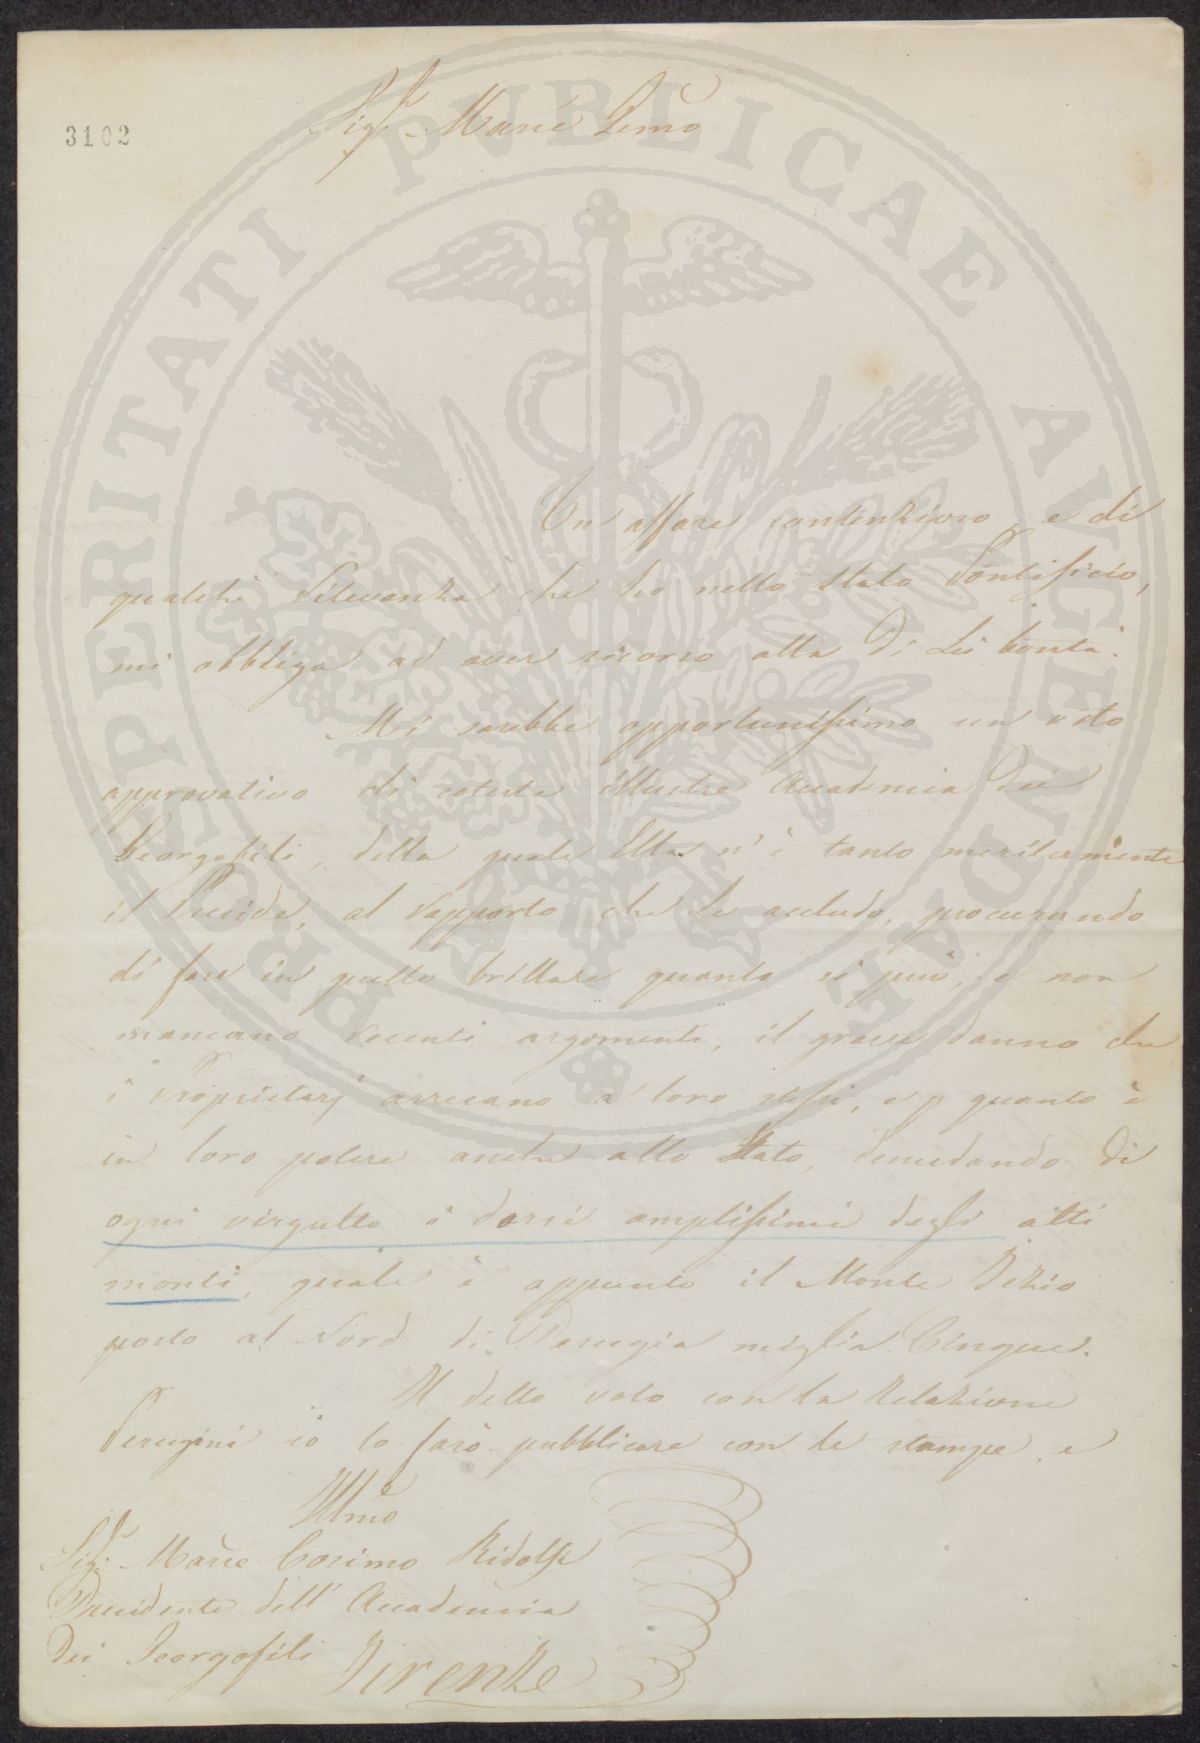 3102
Sigr. Marse Pemo
Un affare contenzioso e di
qualche rilevanza che ho nello Stato Pontificio,
mi obbliga ad aver ricorso alla di Lei bontà.
Mi sarebbe opportunissimo un voto
approvativo di cotesta illustre Accademia dei
Georgofili, della quale Ella n'è tanto meritamente
il Preside, al rapporto che le accludo, procurando
di fare in quello brillare quanto si può, e non
mancano recenti argomenti, il grave danno che
i Proprietarj arrecano a loro stessi, e p quanto è
in loro potere anche allo Stato, denudando di
ogni virgulto i dorsi amplissimi degli alti
monti, quale è appunto il Monte Tezio
posto al Nord di Perugia miglia Cinque.
Il detto voto con la Relazione
Perugini io lo farò pubblicare con le stampe, e
Illmo
Sigr. Marse Cosimo Ridolfi
Presidente dell' Accademia
dei Georgofili Firenze
PROSPERITATI PUBLICAE AUGENDAE